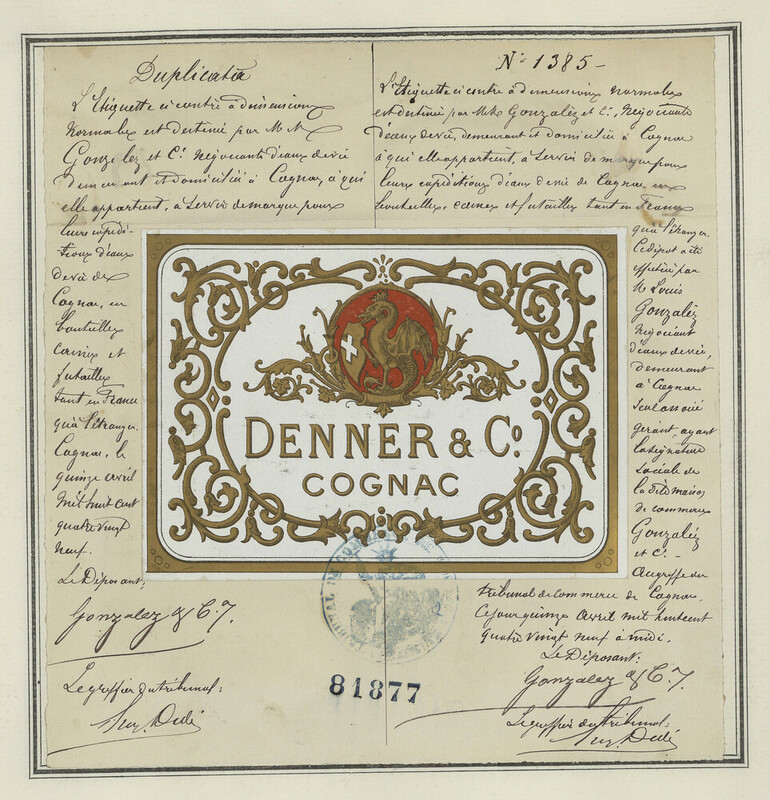 Duplicata
L'Etiquette ci contre à dimensions
normales est destinée par M M
Gonzalez et Cⁱᵉ Négociants d'eaux de vie
demeurant et domiciliés à Cognac, à qui
elle appartient, à servir de marque pour
leurs expédi-
tions d'eaux
de vie de
Cognac, en
bouteilles
caisses et
futailles
tant en France
qu'à l'étranger.
Cognac, le
quinze avril
mil huit cent
quatre vingt
neuf.
Le Déposant:
Gonzalez & C.ⁱᵉ
Le greffier du tribunal:
Nº 1385-
L'Etiquette ci contre à dimensions normales
est destinée par M M. Gonzalez et Cⁱᵉ, Négociants
d'eaux de vie, demeurant et domiciliés à Cognac
à qui elle appartient, à servir de marque pour
leurs expéditions d'eaux de vie de Cognac, en
bouteilles, caisses et futailles tant en France
qu'à l'étranger.
Ce dépôt a été
effectué par
M Louis
Gonzalez
Négociant
d'eaux de vie,
demeurant
à Cognac
seul associé
gérant, ayant
la signature
sociale de
la dite maison
de commerce
Gonzalez
et Cⁱᵉ -
Au greffe du
tribunal de commerce de Cognac.
Ce jour quinze Avril mil huit cent
quatre vingt neuf à midi.
Le Déposant:
Gonzalez & C.ⁱᵉ
Le greffier du tribunal:
DENNER & Cº
COGNAC
81877